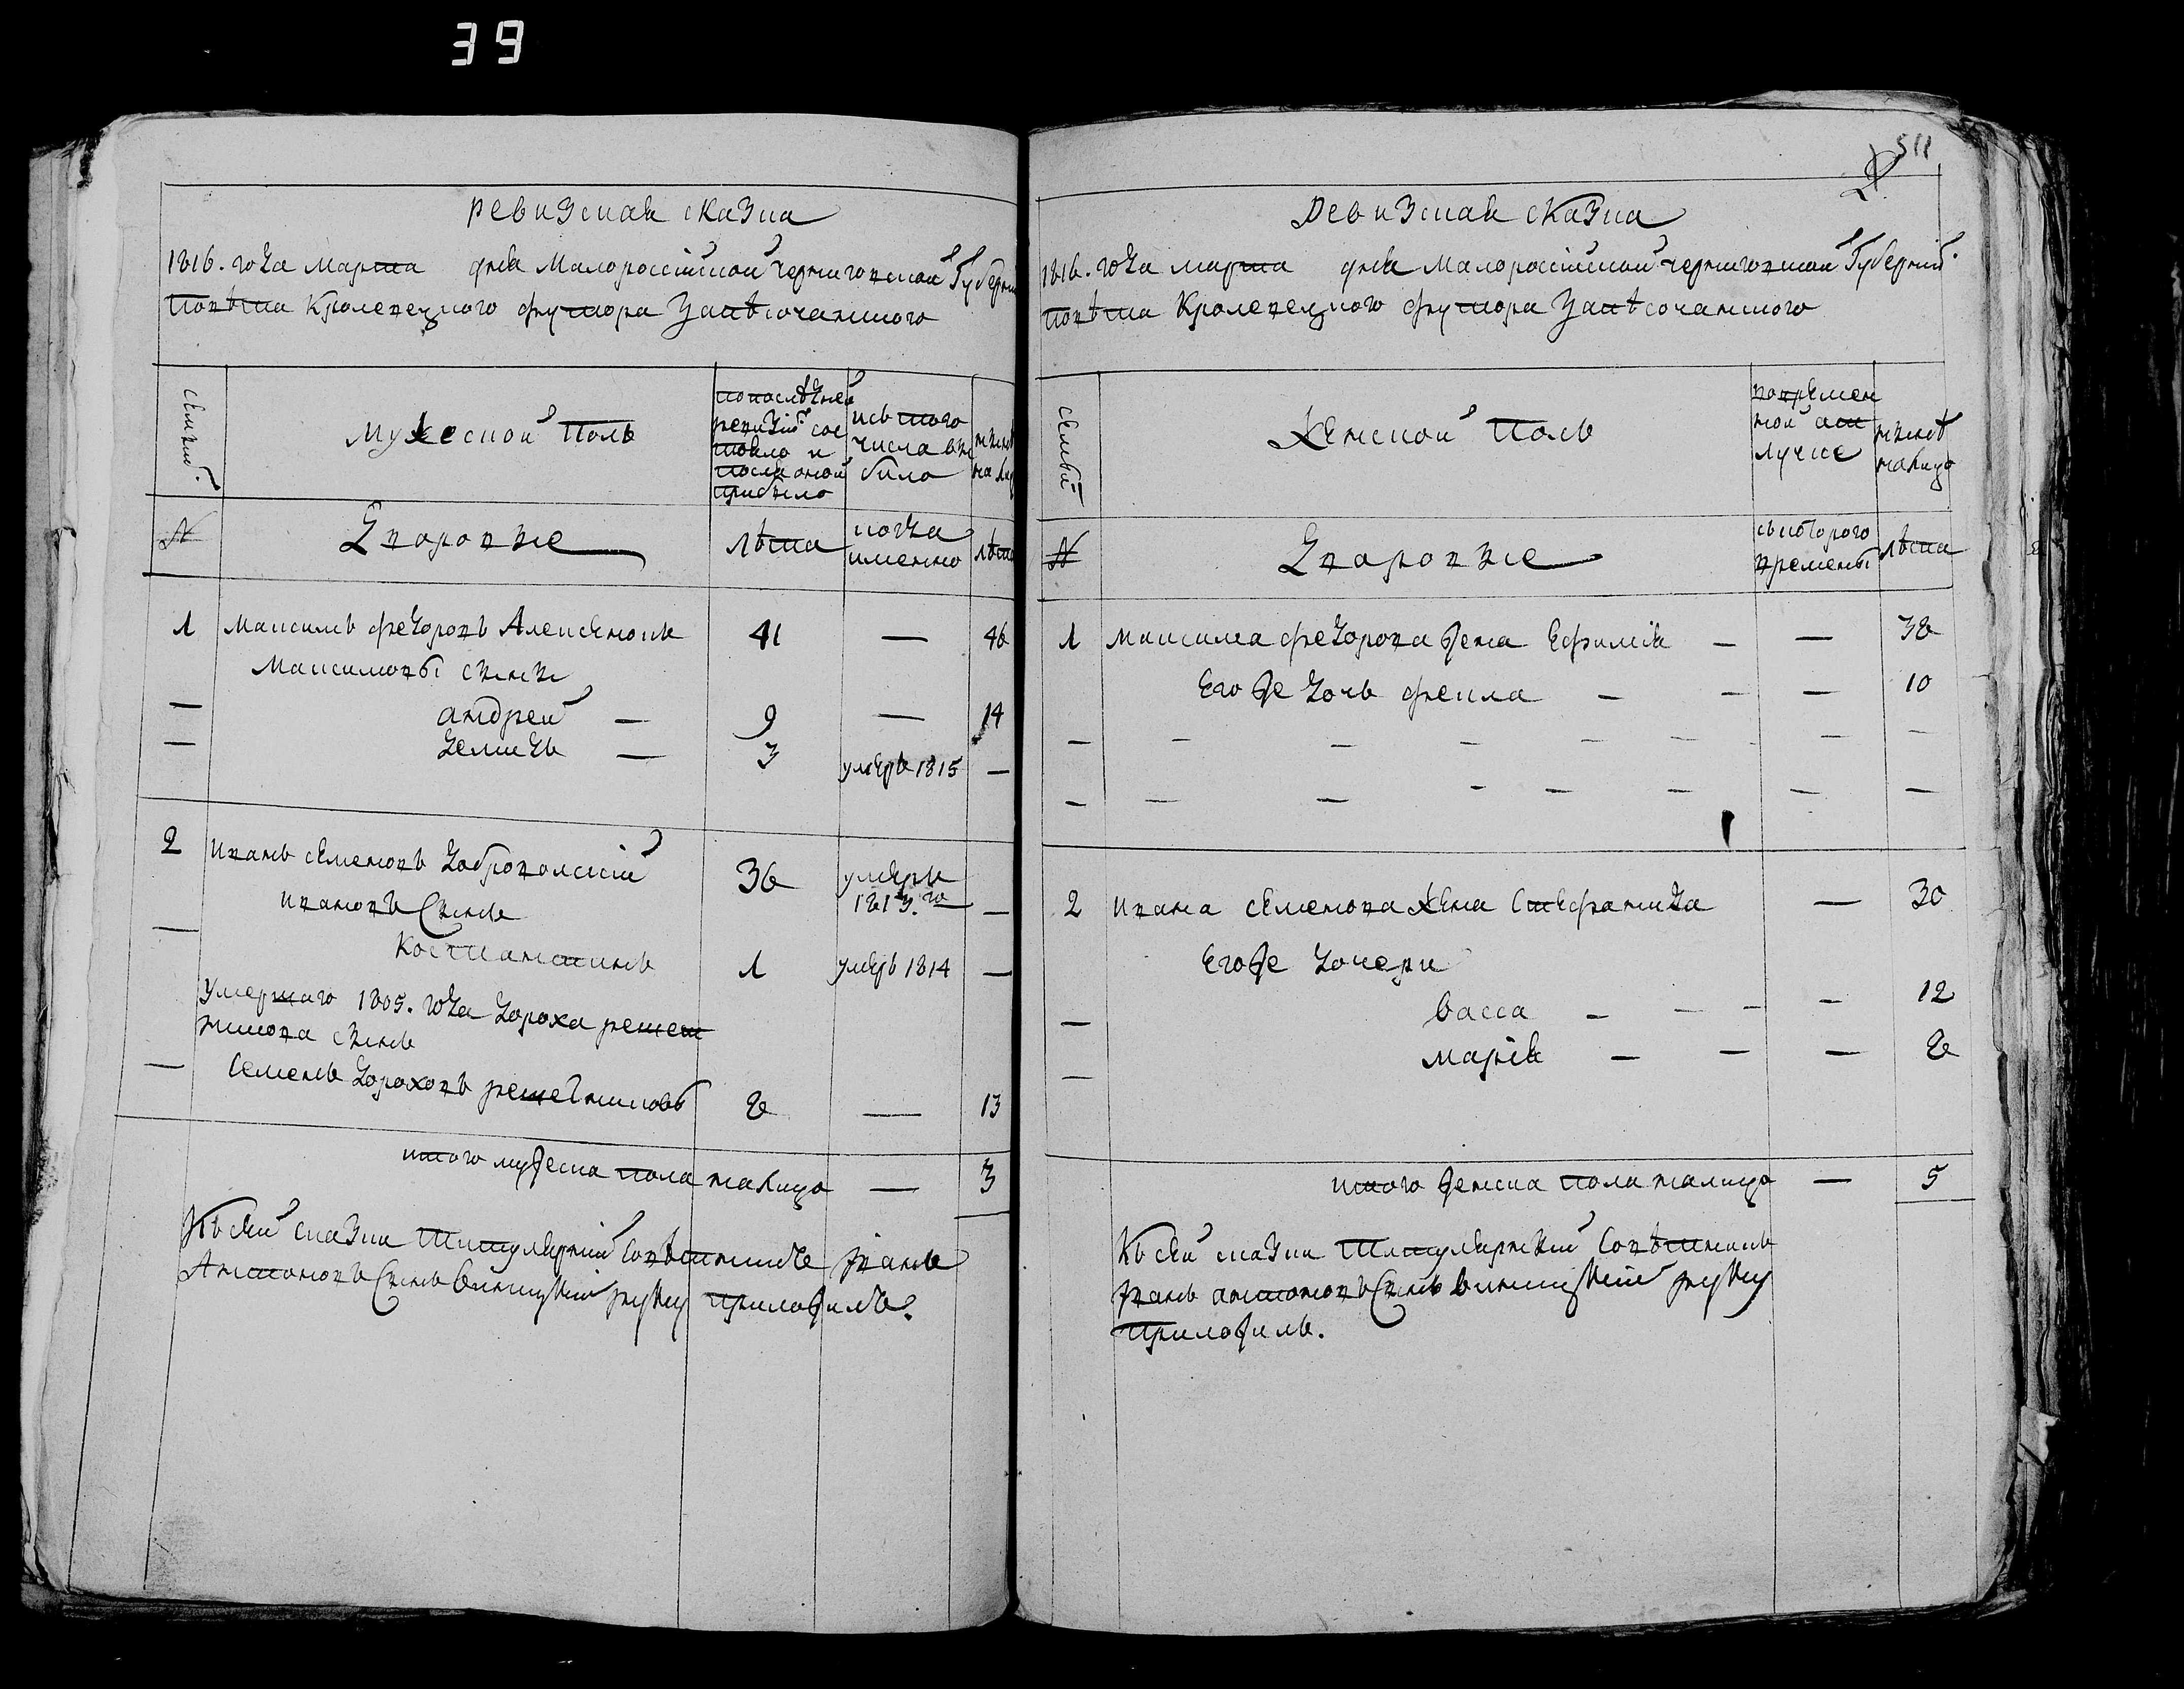 39
511
Ревизская сказка
1816. года марта дня Малороссійской черниговской Губерніи
повѣта Кролевецкого футора Запѣсочанского
семьи
Мужеской полъ
по послѣдней
ревизіи сос
тояло и
после оной
прибыло
исъ того
числа вы
било
нынѣ
на лицо
№
Дворовые
лѣта
когда
именно
лѣта
1 Максимъ Федоровъ Алексенокъ 41 — 46
Максимовы сыны
— андрей — 9 — 14
— Демидъ — 3 умеръ 1815 —
2 Иванъ Семеновъ Добровольскій 36 умеръ
1813.го —
Ивановъ Сынъ
— Костантинъ 1 умеръ 1814 —
Умершаго 1805. года Дороха решет
никова сынъ
— Семенъ Дороховъ решетниковъ 8 — 13
итого мужеска пола налицо — 3
Къ сей сказки Титулярный Совѣтникъ Иванъ
Антоновъ Сынъ Винницкій руку приложилъ.
Ревизская сказка
1816. года марта дня Малороссійской черниговской Губерніи.
повѣта Кролевецкого футора Запѣсочанского
семьи
Женской полъ
во времен
ной от
лучке
нынѣ
налицо
№
Дворовые
съ которого
времены
лѣта
1 Максима Федорова жена Ефимія — — 38
Его же дочь Фекла — — — 10
— — — — — — — —
— — — — — — — —
2 Ивана Семенова жена Стефанида — 30
Его же дочери
— Васса — — — — 12
— Марія — — — 8
итого женска пола налицо — 5
Къ сей сказки Титулярный Совѣтникъ
Иванъ антоновъ Сынъ Винницкій руку
приложилъ.